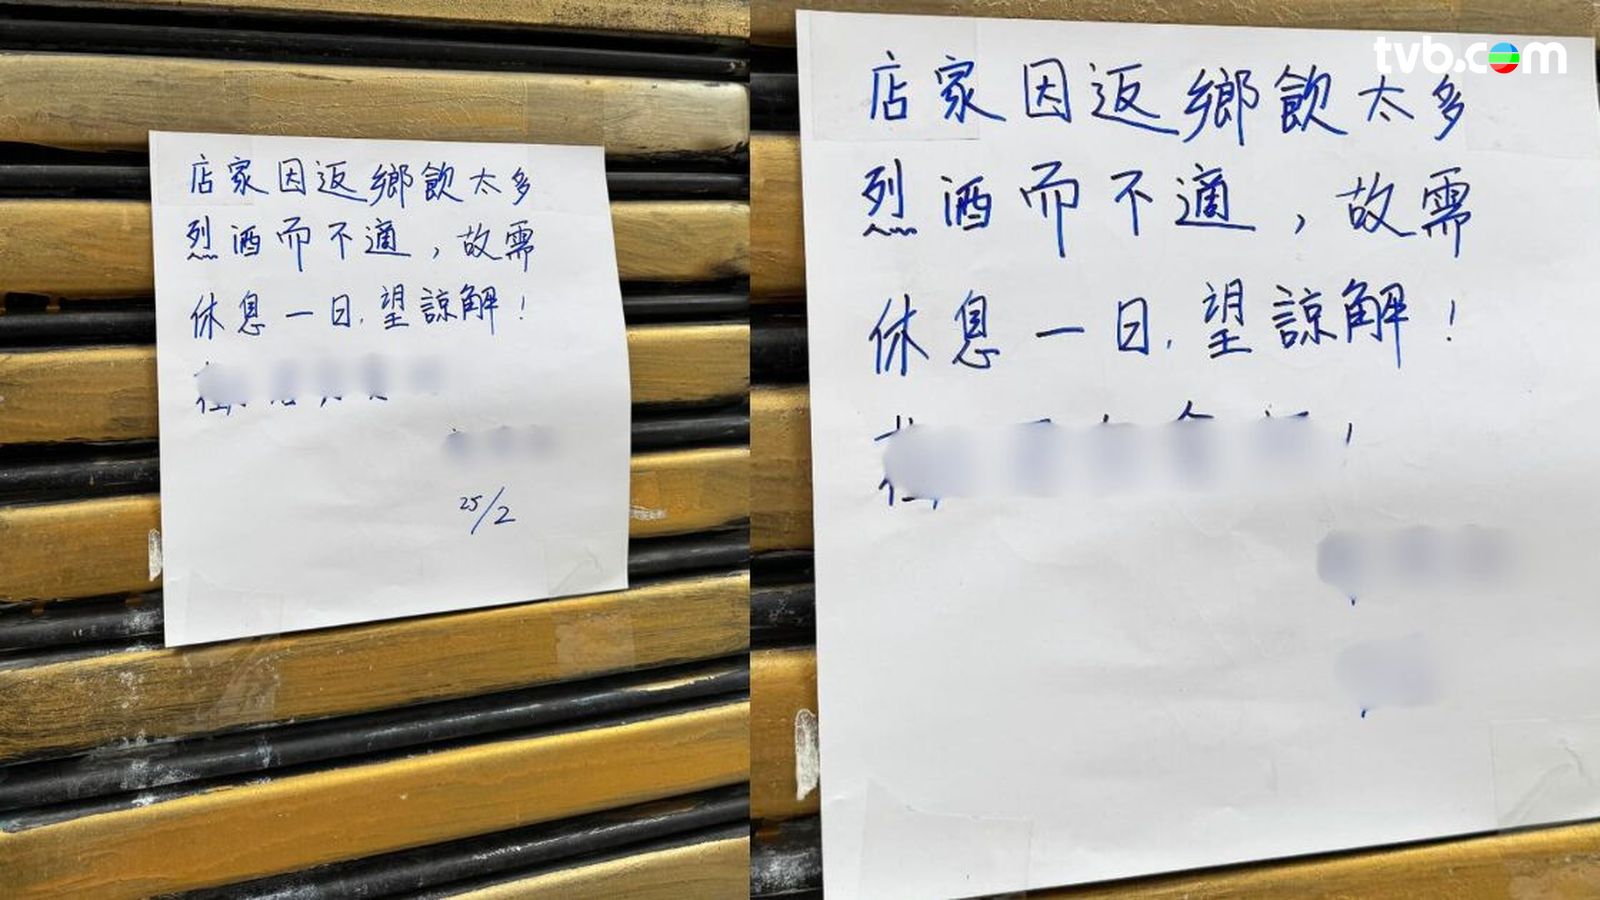 店家因返鄉飲太多
烈酒而不適，故需
休息一日，望諒解！
25/2
tvb.com
店家因返鄉飲太多
烈酒而不適，故需
休息一日，望諒解！